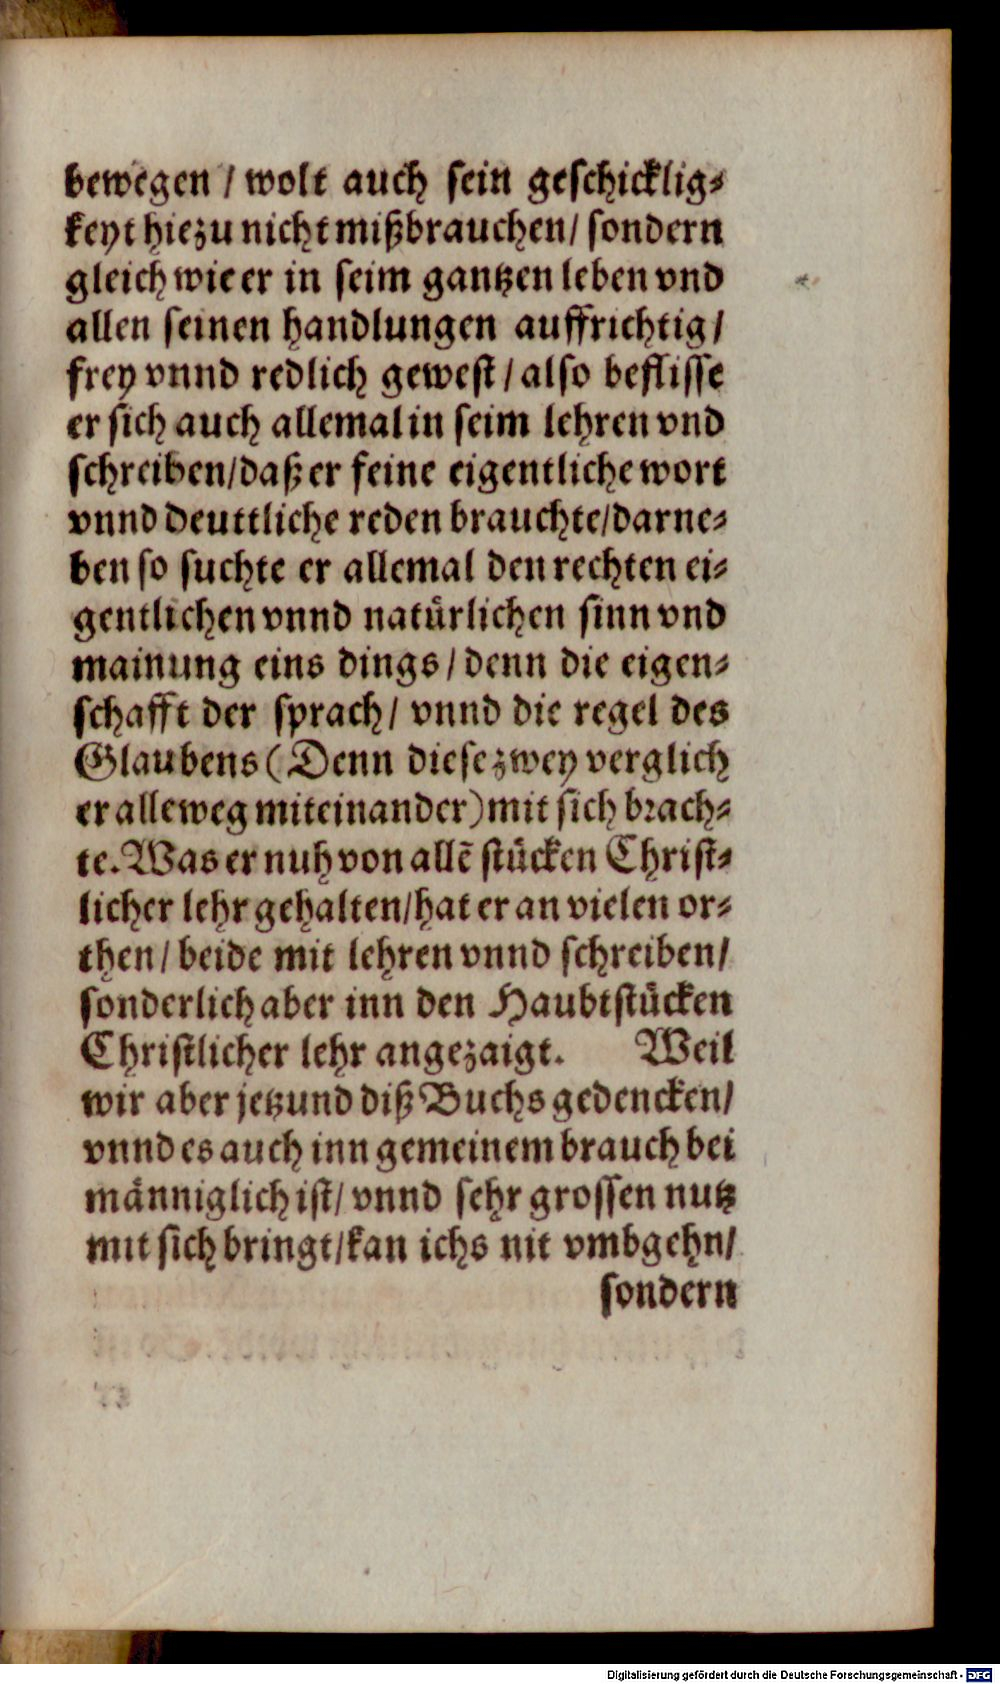 bewegen / wolt auch sein geschicklig⸗
keyt hiezu nicht mißbrauchen / sondern
gleich wie er in seim gantzen leben vnd
allen seinen handlungen auffrichtig /
frey vnnd redlich gewest / also beflisse
er sich auch allemal in seim lehren vnd
schreiben / daß er feine eigentliche wort
vnnd deuttliche reden brauchte / darne⸗
ben so suchte er allemal den rechten ei⸗
gentlichen vnnd natürlichen sinn vnd
mainung eins dings / denn die eigen⸗
schafft der sprach / vnnd die regel des
Glaubens (Denn diese zwey verglich
er alleweg miteinander) mit sich brach⸗
te. Was er nuh von allē stücken Christ⸗
licher lehr gehalten / hat er an vielen or⸗
then / beide mit lehren vnnd schreiben /
sonderlich aber inn den Haubtstücken
Christlicher lehr angezaigt. Weil
wir aber jetzund diß Buchs gedencken /
vnnd es auch inn gemeinem brauch bei
männiglich ist / vnnd sehr grossen nutz
mit sich bringt / kan ichs nit vmbgehn /
sondern
Digitalisierung gefördert durch die Deutsche Forschungsgemeinschaft - DFG